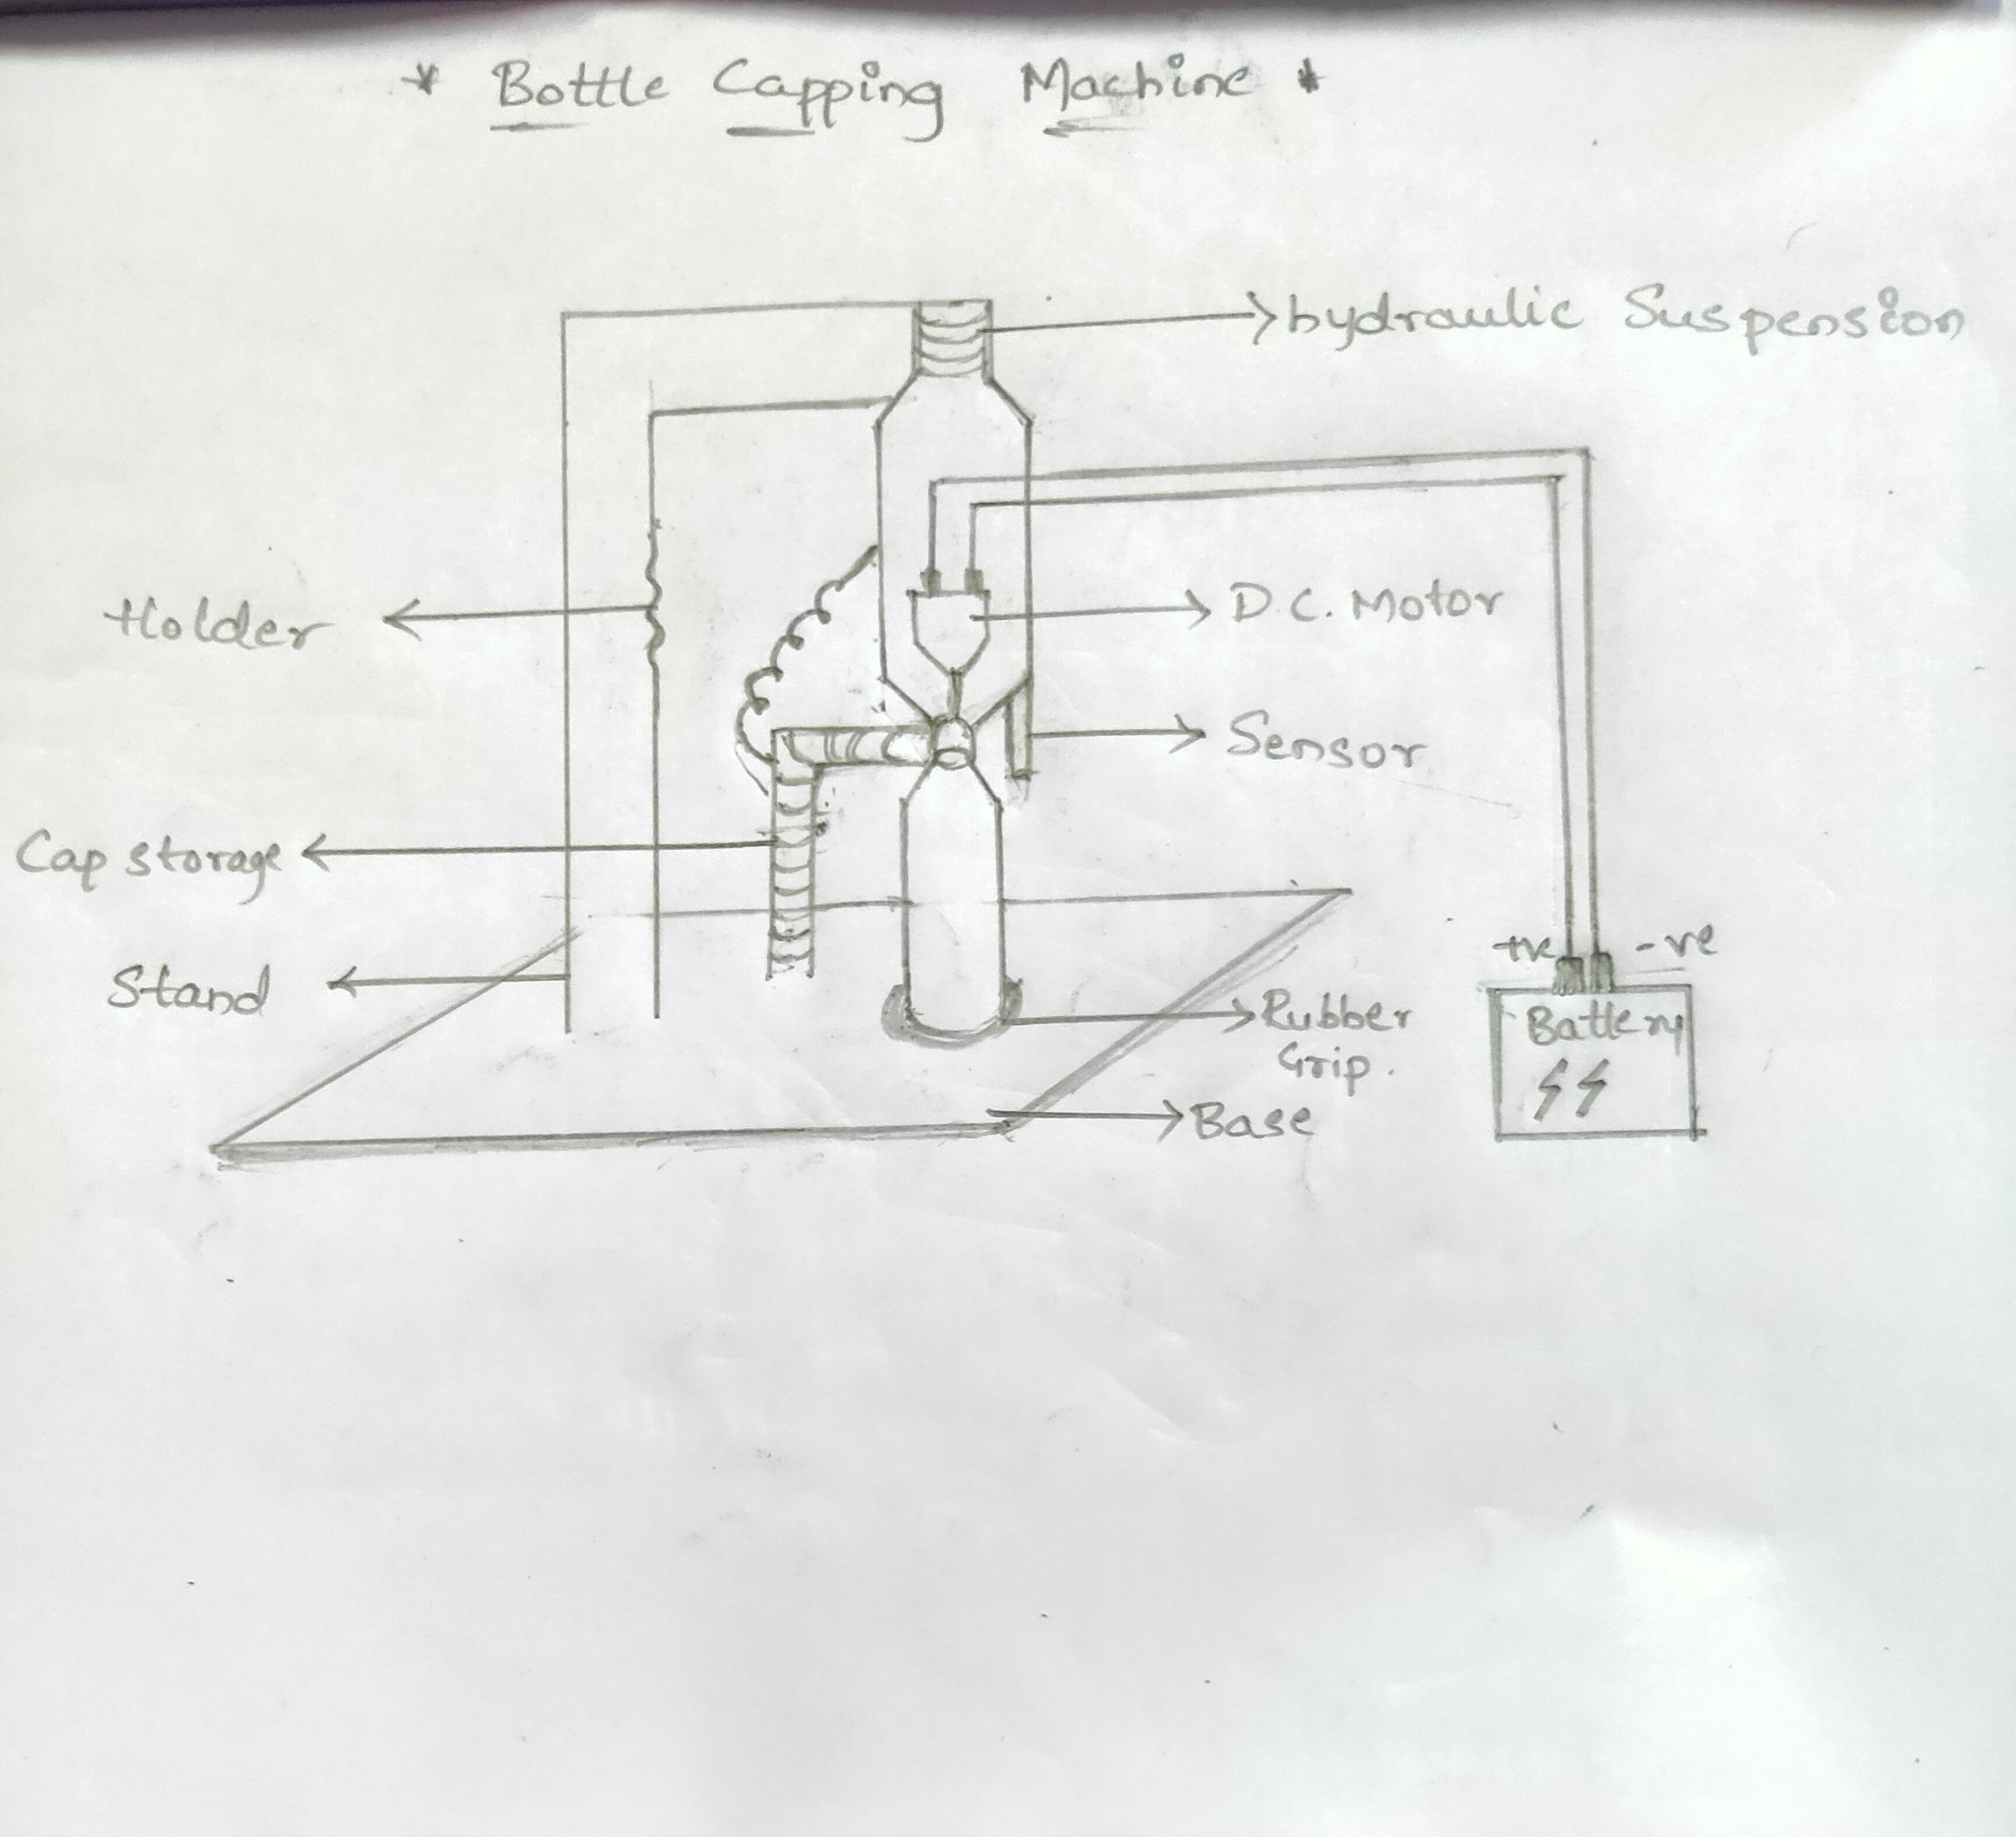 * Bottle Capping Machine *
hydraulic Suspension
Holder
D.C. Motor
Sensor
Cap storage
Stand
+ve -ve
Battery
Rubber
Grip.
Base